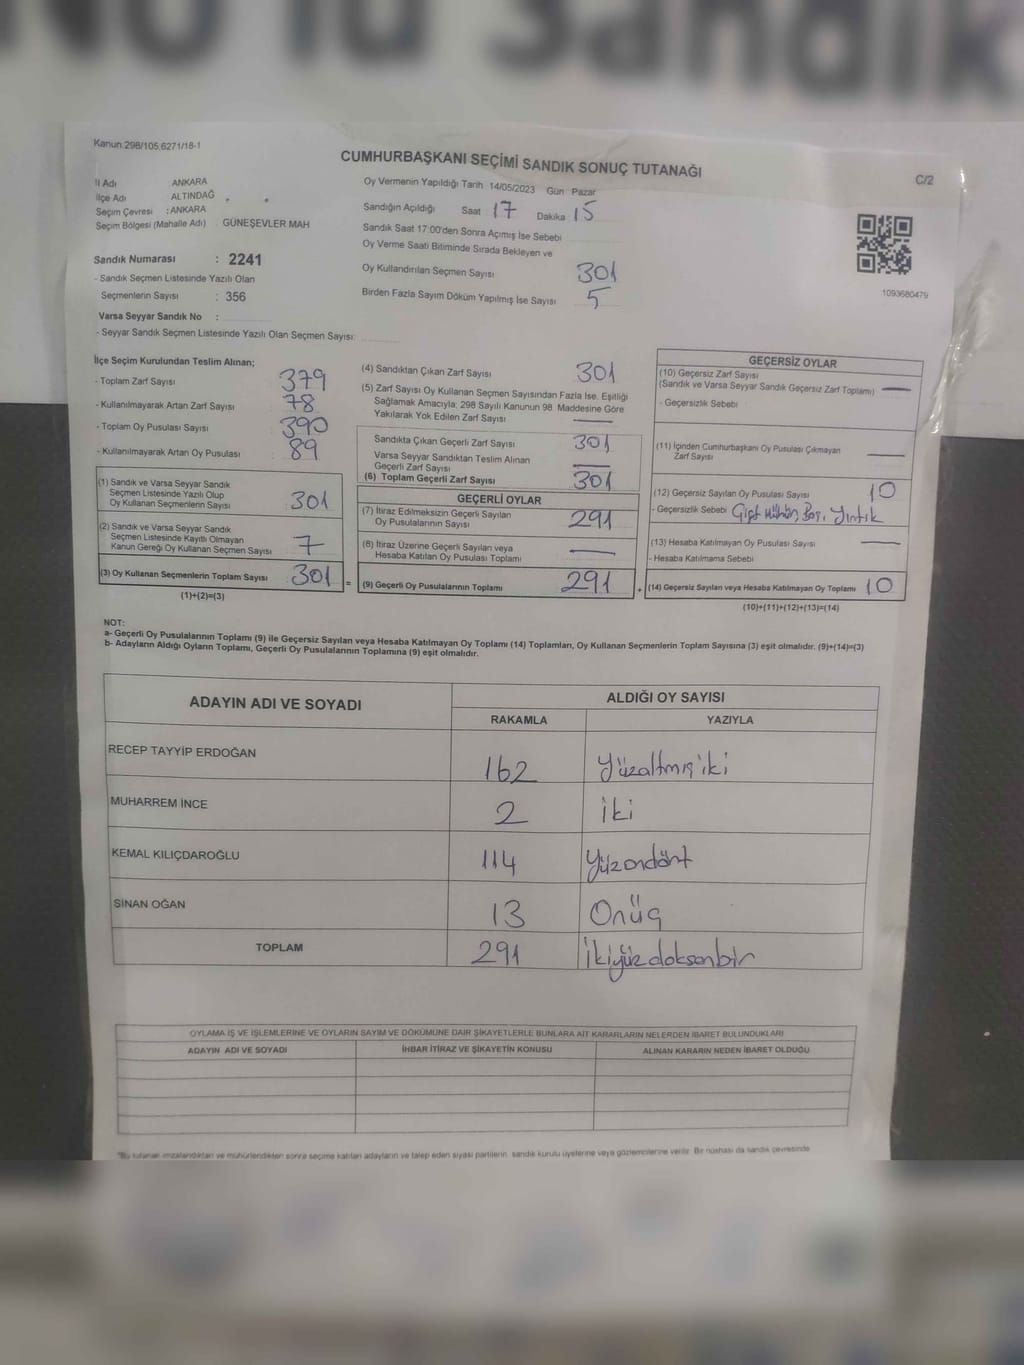 No'lu Sandık
Kanun:298/105,6271/18-1
CUMHURBAŞKANI SEÇİMİ SANDIK SONUÇ TUTANAĞI
C/2
İl Adı ANKARA
İlçe Adı ALTINDAĞ
Seçim Çevresi : ANKARA
Seçim Bölgesi (Mahalle Adı) GÜNEŞEVLER MAH
Sandık Numarası : 2241
- Sandık Seçmen Listesinde Yazılı Olan
Seçmenlerin Sayısı : 356
Varsa Seyyar Sandık No :
- Seyyar Sandık Seçmen Listesinde Yazılı Olan Seçmen Sayısı:
Oy Vermenin Yapıldığı Tarih 14/05/2023 Gün Pazar
Sandığın Açıldığı Saat 17 Dakika 15
Sandık Saat 17:00'den Sonra Açımış İse Sebebi
Oy Verme Saati Bitiminde Sırada Bekleyen ve
Oy Kullandırılan Seçmen Sayısı 301
Birden Fazla Sayım Döküm Yapılmış İse Sayısı 5
1093680479
İlçe Seçim Kurulundan Teslim Alınan;
- Toplam Zarf Sayısı 379
- Kullanılmayarak Artan Zarf Sayısı 78
- Toplam Oy Pusulası Sayısı 390
- Kullanılmayarak Artan Oy Pusulası 89
(1) Sandık ve Varsa Seyyar Sandık
Seçmen Listesinde Yazılı Olup
Oy Kullanan Seçmenlerin Sayısı 301
(2) Sandık ve Varsa Seyyar Sandık
Seçmen Listesinde Kayıtlı Olmayan
Kanun Gereği Oy Kullanan Seçmen Sayısı 7
(3) Oy Kullanan Seçmenlerin Toplam Sayısı 301 =
(1)+(2)=(3)
(4) Sandıktan Çıkan Zarf Sayısı 301
(5) Zarf Sayısı Oy Kullanan Seçmen Sayısından Fazla İse, Eşitliği
Sağlamak Amacıyla; 298 Sayılı Kanunun 98. Maddesine Göre
Yakılarak Yok Edilen Zarf Sayısı —
Sandıkta Çıkan Geçerli Zarf Sayısı 301
Varsa Seyyar Sandıktan Teslim Alınan
Geçerli Zarf Sayısı —
(6) Toplam Geçerli Zarf Sayısı 301
GEÇERLİ OYLAR
(7) İtiraz Edilmeksizin Geçerli Sayılan
Oy Pusulalarının Sayısı 291
(8) İtiraz Üzerine Geçerli Sayılan veya
Hesaba Katılan Oy Pusulası Toplamı —
(9) Geçerli Oy Pusulalarının Toplamı 291 +
GEÇERSİZ OYLAR
(10) Geçersiz Zarf Sayısı
(Sandık ve Varsa Seyyar Sandık Geçersiz Zarf Toplamı) —
- Geçersizlik Sebebi
(11) İçinden Cumhurbaşkanı Oy Pusulası Çıkmayan
Zarf Sayısı —
(12) Geçersiz Sayılan Oy Pusulası Sayısı 10
- Geçersizlik Sebebi Çift Mühür, Boş, Yırtık
(13) Hesaba Katılmayan Oy Pusulası Sayısı —
- Hesaba Katılmama Sebebi
(14) Geçersiz Sayılan veya Hesaba Katılmayan Oy Toplamı 10
(10)+(11)+(12)+(13)=(14)
NOT:
a- Geçerli Oy Pusulalarının Toplamı (9) ile Geçersiz Sayılan veya Hesaba Katılmayan Oy Toplamı (14) Toplamları, Oy Kullanan Seçmenlerin Toplam Sayısına (3) eşit olmalıdır. (9)+(14)=(3)
b- Adayların Aldığı Oyların Toplamı, Geçerli Oy Pusulalarının Toplamına (9) eşit olmalıdır.
ADAYIN ADI VE SOYADI ALDIĞI OY SAYISI
RAKAMLA YAZIYLA
RECEP TAYYİP ERDOĞAN 162 Yüzaltmış iki
MUHARREM İNCE 2 İki
KEMAL KILIÇDAROĞLU 114 Yüzondört
SİNAN OĞAN 13 Onüç
TOPLAM 291 İkiyüzdoksanbir
OYLAMA İŞ VE İŞLEMLERİNE VE OYLARIN SAYIM VE DÖKÜMÜNE DAİR ŞİKAYETLERLE BUNLARA AİT KARARLARIN NELERDEN İBARET BULUNDUKLARI
ADAYIN ADI VE SOYADI İHBAR İTİRAZ VE ŞİKAYETİN KONUSU ALINAN KARARIN NEDEN İBARET OLDUĞU
*Bu tutanak imzalandıktan ve mühürlendikten sonra seçime katılan adayların ve talep eden siyasi partilerin sandık kurulu üyelerine veya gözlemcilerine verilir. Bir nüshası da sandık çevresinde